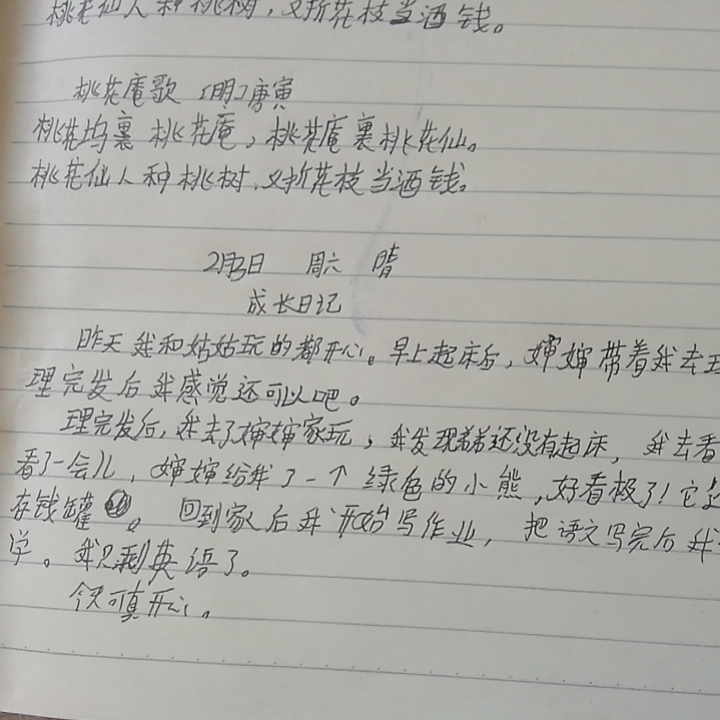 桃花仙人种桃树，又折花枝当酒钱。
桃花庵歌 [明]唐寅
桃花坞裏桃花庵，桃花庵裏桃花仙。
桃花仙人种桃树，又折花枝当酒钱。
2月3日 周六 晴
成长日记
昨天我和姑姑玩的都开心。早上起床后，婶婶带着我去
理完发后我感觉还可以吧。
理完发后，我去了婶婶家玩，我发现弟弟还没有起床，我去看
看了一会儿，婶婶给我了一个绿色的小熊，好看极了！它
存钱罐。回到家后我开始写作业，把语文写完后我
学。我只剩英语了。
今天可真开心。